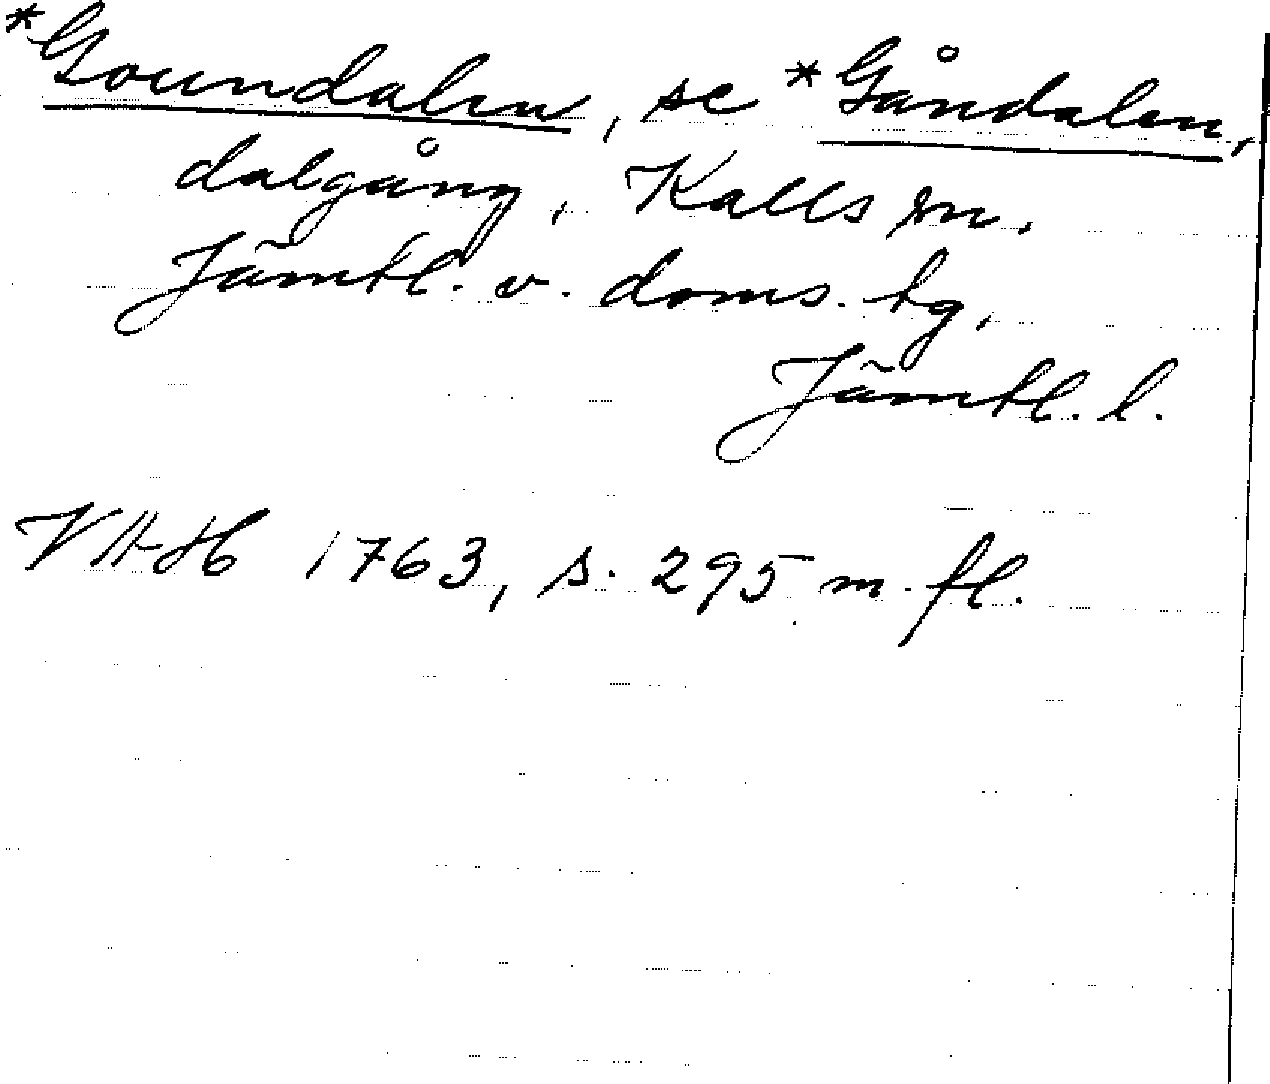 *Goundalen, se *Gåndalen,
dalgång, Kalls sn.
Jämtl. v. doms. tg,
Jämtl. l.
VAH 1763, s. 295 m. fl.